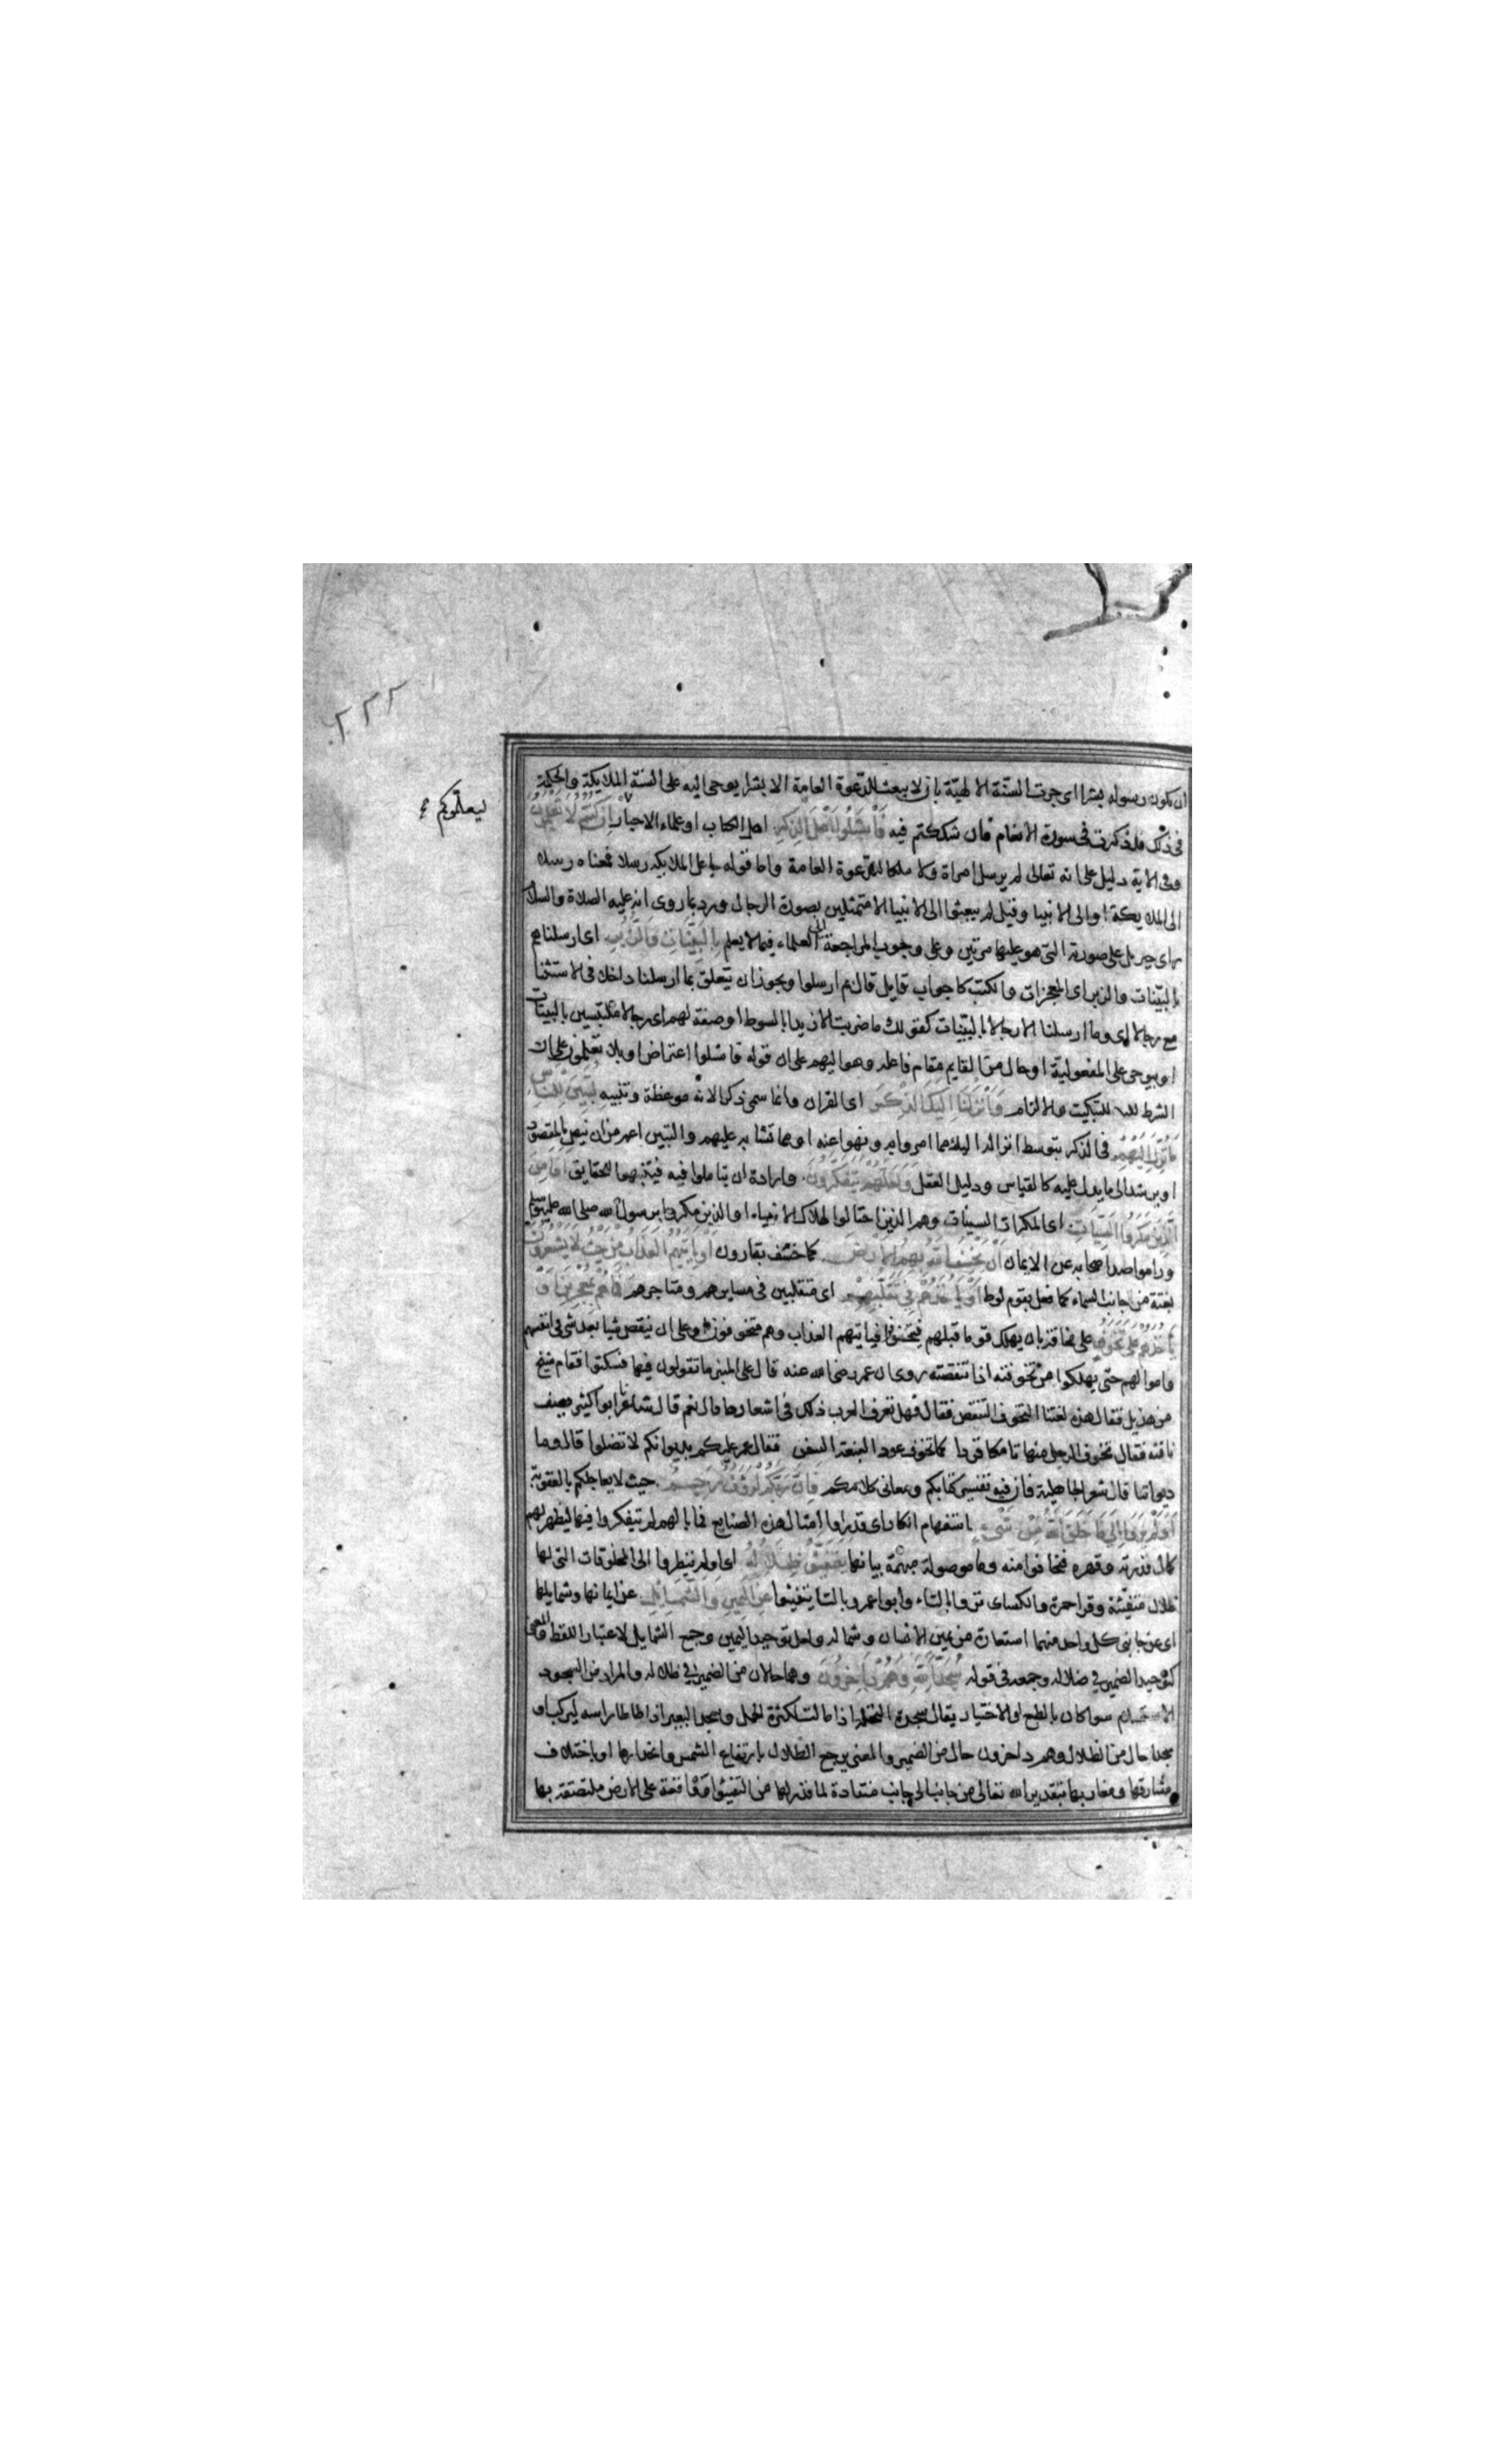 ٢٢٢
ليعلموكم
ان يكون رسوله بشرا اى جرت السنة الالهية بان لا يبعث للدعوة العامة الا بشرا يوحى اليه على السنة الملايكة والحكمة
فى ذلك قد ذكرت فى سورة الانعام فان شككتم فيه فَاسْئَلُوا اَهْلَ الذِّكْرِ اهل الكتاب او علماء الاحبار اِنْ كُنْتُمْ لَا تَعْلَمُونَ
وفى الاية دليل على انه تعالى لم يرسل امراة ولا ملكا للدعوة العامة واما قوله جاعل الملايكة رسلا فمعناه رسلا
الى الملايكة او الى الانبيا وقيل لم يبعثوا الى الانبيا الا متمثلين بصورة الرجال ورد بما روى انه عليه الصلاة والسلام
راى جبريل على صورته التى هو عليها مرتين وعلى وجوب المراجعة الى العلماء فيما لا يعلم بِالْبَيِّنَاتِ وَالزُّبُرِ اى ارسلناهم
بالبينات والزبر اى المعجزات والكتب كانه جواب قايل قال بم ارسلوا ويجوز ان يتعلق بما ارسلنا داخلا فى الاستثنا
مع رجالا اى وما ارسلنا الا رجالا بالبينات كقولك ما ضربت الا زيدا بالسوط او صفة لهم اى رجالا متلبسين بالبينات
او بيوحى على المفعولية او حال من القايم مقام فاعله وهو اليهم على ان قوله فاسئلوا اعتراض او بلا تعلمون على ان
الشرط للتبكيت والالزام وَاَنْزَلْنَا اِلَيْكَ الذِّكْرَ اى القران وانما سمى ذكرا لانه موعظة وتنبيه لِتُبَيِّنَ لِلنَّاسِ
مَا نُزِّلَ اِلَيْهِمْ فى الذكر بتوسط انزاله اليك مما امروا به ونهوا عنه او مما تشابه عليهم والتبيين اعم من ان ينص بالمقصود
او يرشد الى ما يدل عليه كالقياس ودليل العقل وَلَعَلَّهُمْ يَتَفَكَّرُونَ وارادة ان يتاملوا فيه فيتنبهوا للحقايق اَفَاَمِنَ
الَّذِينَ مَكَرُوا السَّيِّئَاتِ اى المكرات السيئات وهم الذين احتالوا لهلاك الانبياء او الذين مكروا برسول الله صلى الله عليه وسلم
وراموا صد اصحابه عن الايمان اَنْ يَخْسِفَ اللهُ بِهِمُ الْاَرْضَ كما خسف بقارون اَوْ يَاْتِيَهُمُ الْعَذَابُ مِنْ حَيْثُ لَا يَشْعُرُونَ
بغتة من جانب السماء كما فعل بقوم لوط اَوْ يَاْخُذَهُمْ فِى تَقَلُّبِهِمْ اى متقلبين فى مسايرهم ومتاجرهم فَمَا هُمْ بِمُعْجِزِينَ اَوْ
يَاْخُذَهُمْ عَلَى تَخَوُّفٍ على مخافة بان يهلك قوما قبلهم فيتخوفوا فياتيهم العذاب وهم متخوفون او على ان ينقص شيا بعد شى فى انفسهم
واموالهم حتى يهلكوا من تخوفته اذا تنقصته روى ان عمر رضى الله عنه قال على المنبر ما تقولون فيها فسكتوا فقام شيخ
من هذيل فقال هذه لغتنا التخوف التنقص فقال فهل تعرف العرب ذلك فى اشعارها قال نعم قال شاعرنا ابو كثير يصف
ناقته فقال تخوف الرحل منها تامكا قردا كما تخوف عود النبعة السفن فقال عمر عليكم بديوانكم لا تضلوا قالوا وما
ديواننا قال شعر الجاهلية فان فيه تفسير كتابكم ومعانى كلامكم فَاِنَّ رَبَّكُمْ لَرَؤُفٌ رَحِيمٌ حيث لا يعاجلكم بالعقوبة
اَوَلَمْ يَرَوْا اِلَى مَا خَلَقَ اللهُ مِنْ شَىْءٍ استفهام انكار اى قد راوا امثال هذه الصنايع فما بالهم لم يتفكروا فيها ليظهر لهم
كمال قدرته وقهره فيخافوا منه وما موصولة مبهمة بيانها يَتَفَيَّؤُ ظِلَالُهُ اى اولم ينظروا الى المخلوقات التى لها
ظلال متفيئة وقرا حمزة والكساى تروا بالتاء وابو عمرو بالتا يتفيئوا عَنِ الْيَمِينِ وَالشَّمَائِلِ عن ايمانها وشمايلها
اى عن جانبى كل واحد منهما استعارة من يمين الانسان وشماله ولعل توحيد اليمين وجمع الشمايل لاعتبار اللفظ والمعنى
كتوحيد الضمير فى ضلاله وجمعه فى قوله سُجَّدًا لِلهِ وَهُمْ دَاخِرُونَ وهما حالان من الضمير فى ظلاله والمراد من السجود
الاستسلام سوا كان بالطبع او الاختيار يقال سجدت النخلة اذا مالت لكثرة الحمل وسجد البعير اذا طاطا راسه ليركب او
سجدا حال من الظلال وهم داخرون حال من الضمير والمعنى يرجع الظلال بارتفاع الشمس وانحدارها او باختلاف
مشارقها ومغاربها بتقدير الله تعالى من جانب الى جانب منقادة لما قدر لها من التفيئوا واقعة على الارض ملتصقة بها